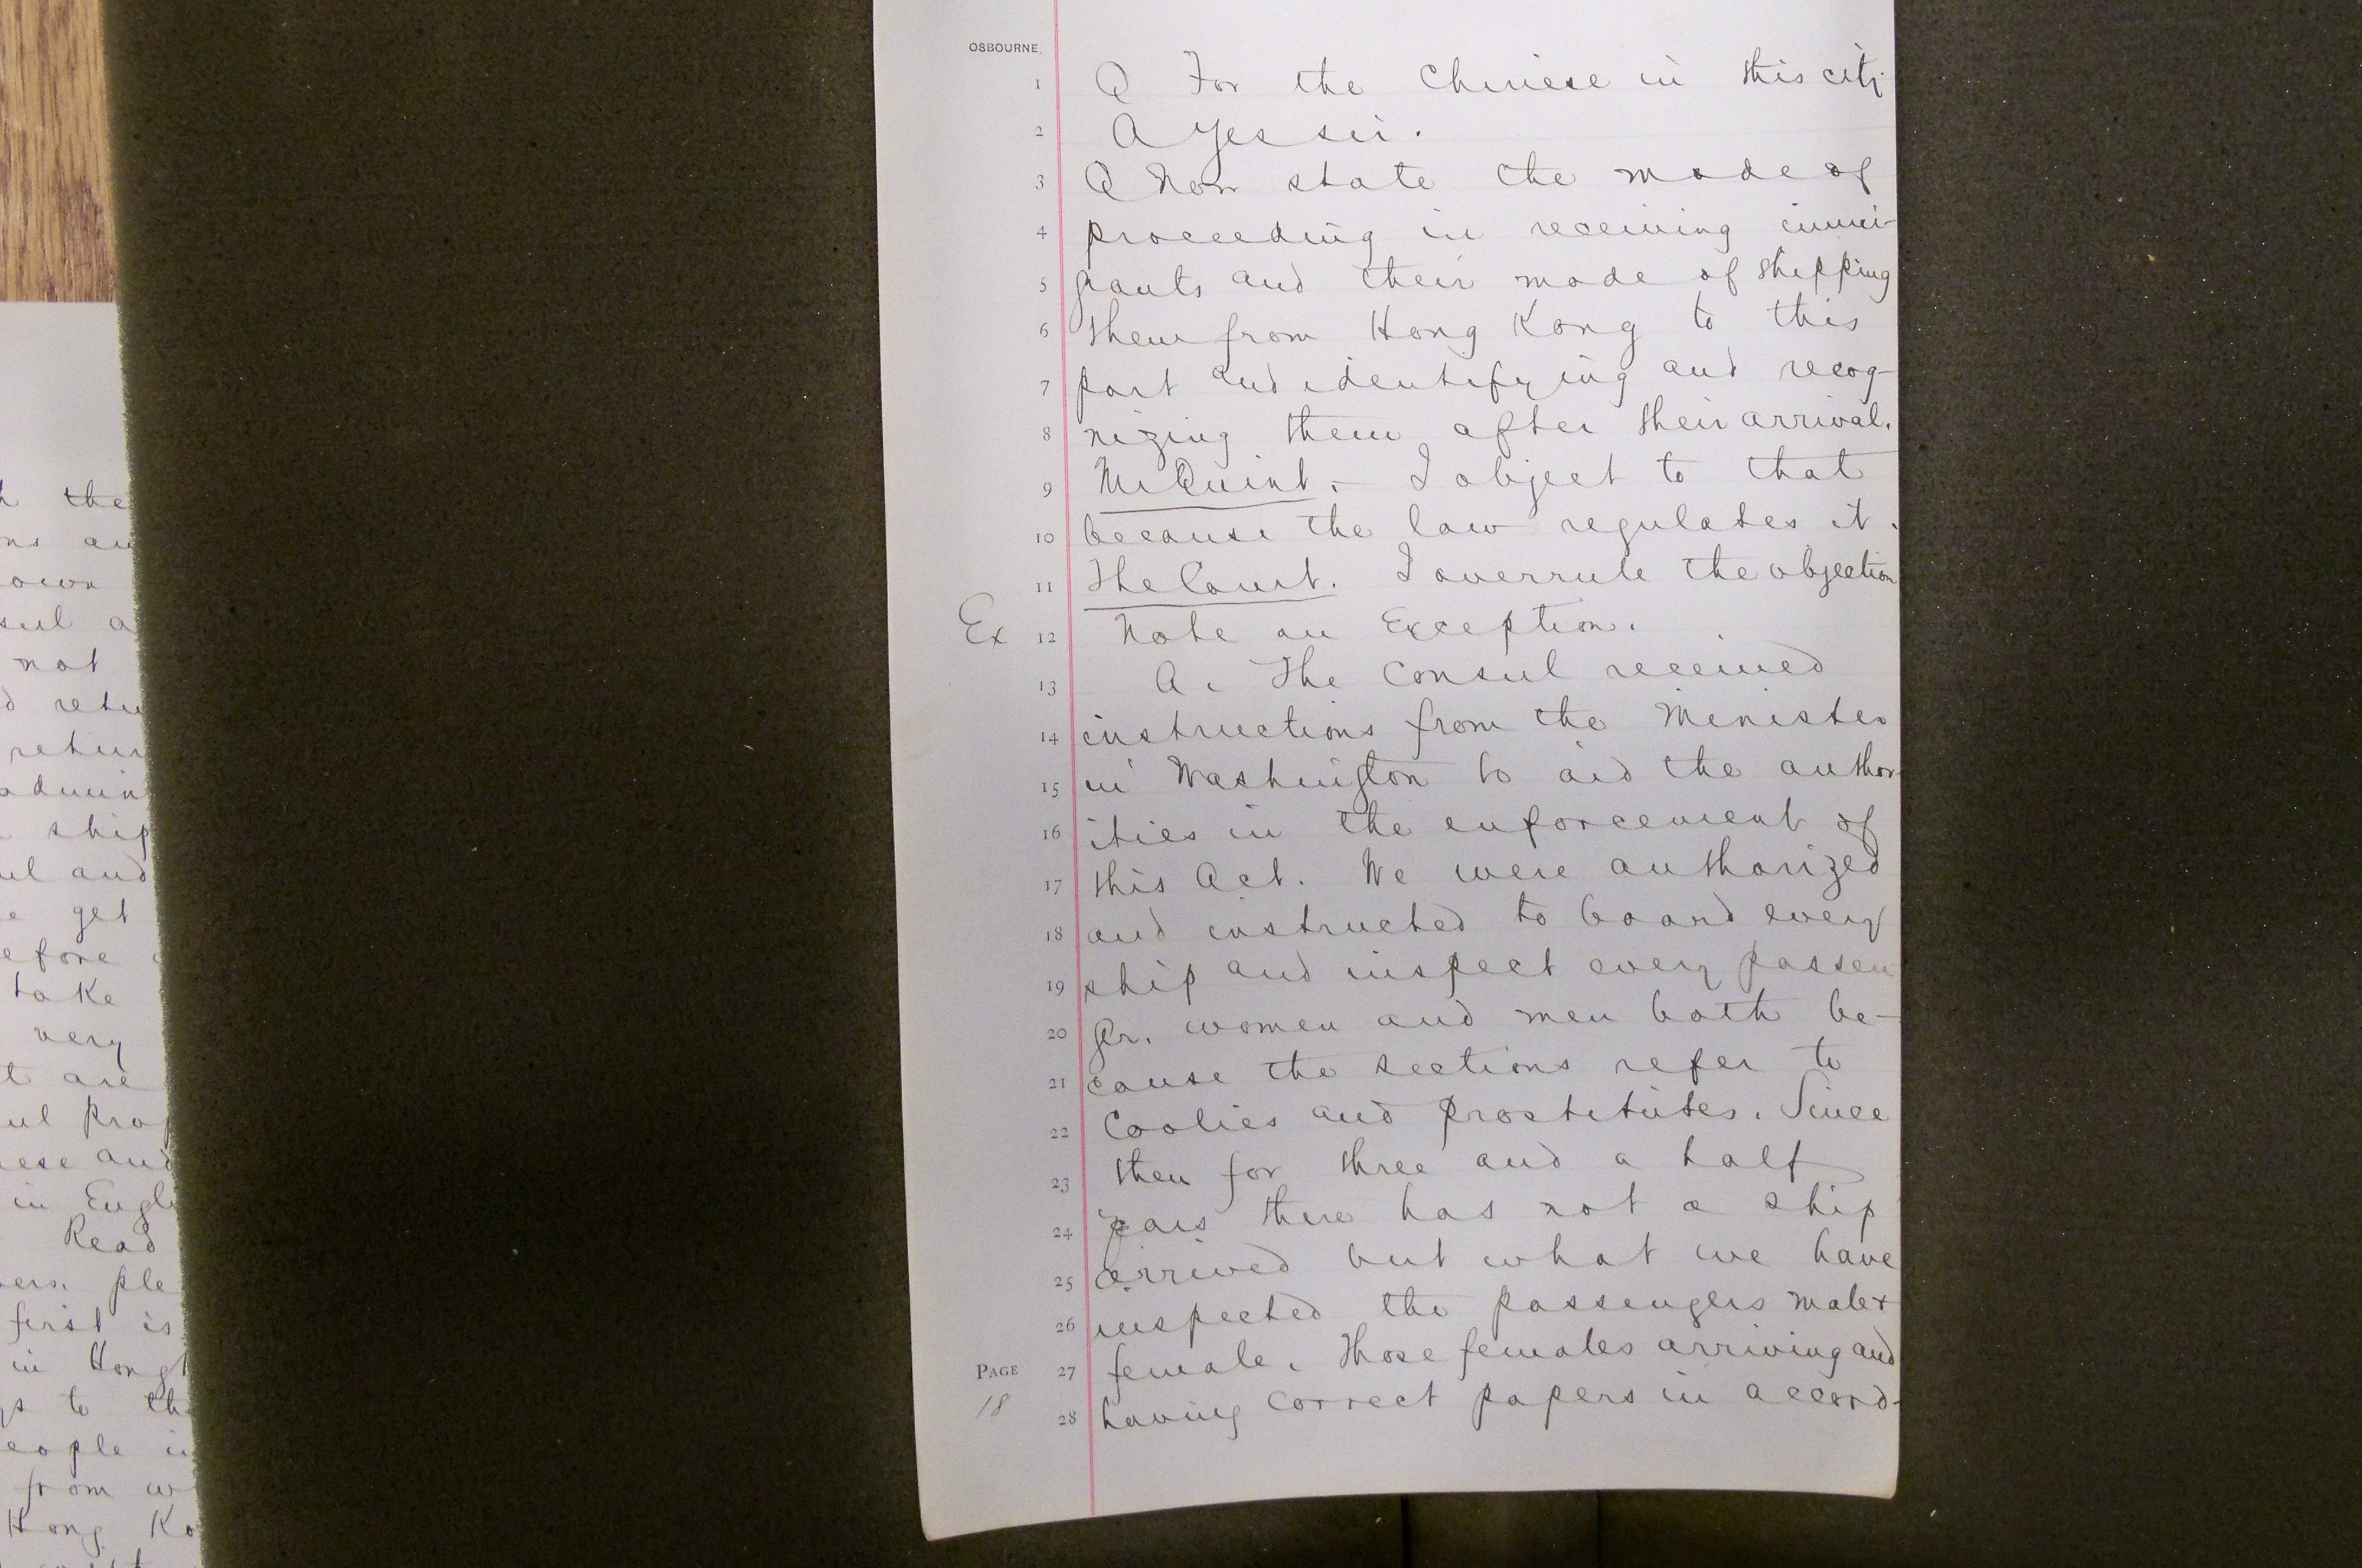 h the
ns an
own
sul a
not
d retu
retur
admin
ship
ul and
e get
efore
take
very
t are
ul prop
ese and
in Engl
Read
vers. ple
first is
in Hong
gs to th
eople in
from w
Hong Ko
OSBOURNE.
1 Q For the Chinese in this city
2 A Yes sir.
3 Q Now state the mode of
4 proceeding in receiving immi-
5 grants and their mode of shipping
6 them from Hong Kong to this
7 port and identifying and recog-
8 nizing them after their arrival.
9 Mr Quint. - I object to that
10 because the law regulates it.
11 The Court. I overrule the objection
Ex 12 Note an Exception.
13 A. The Consul received
14 instructions from the Minister
15 in Washington to aid the author
16 ities in the enforcement of
17 this Act. We were authorized
18 and instructed to board every
19 ship and inspect every passen
20 ger. women and men both be-
21 cause the sections refer to
22 Coolies and prostitutes. Since
23 then for three and a half
24 years there has not a ship
25 arrived but what we have
26 inspected the passengers male &
PAGE 27 female. Those females arriving and
18 28 having correct papers in accord-